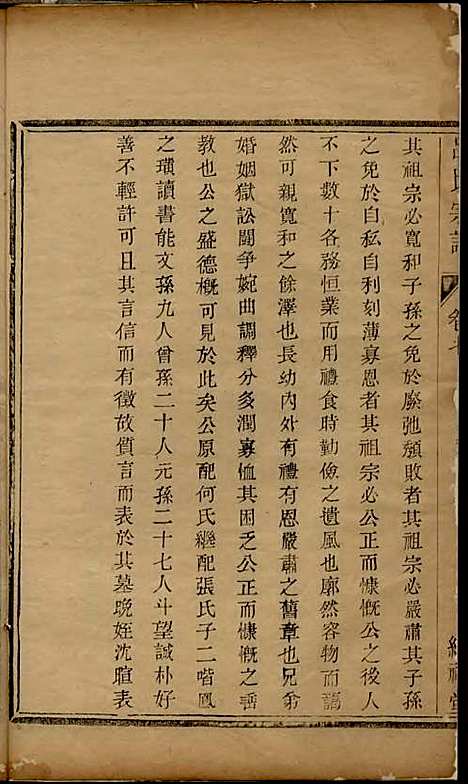 氏宗譜
卷
其祖宗必寬和子孫之免於廢弛頹敗者其祖宗必嚴肅其子孫
之免於自私自利刻薄寡恩者其祖宗必公正而慷慨公之後人
不下數十各務恒業而用禮食時勤儉之遺風也廓然容物而藹
然可親寬和之餘澤也長幼內外有禮有恩嚴肅之舊章也兄弟
婚姻獄訟鬪爭婉曲調釋分多潤寡恤其困乏公正而慷慨之垂
教也公之盛德概可見於此矣公原配何氏繼配張氏子二喈鳳
之璜讀書能文孫九人曾孫二十人元孫二十七人斗望誠朴好
善不輕許可且其言信而有徵故質言而表於其墓晚姪沈暄表